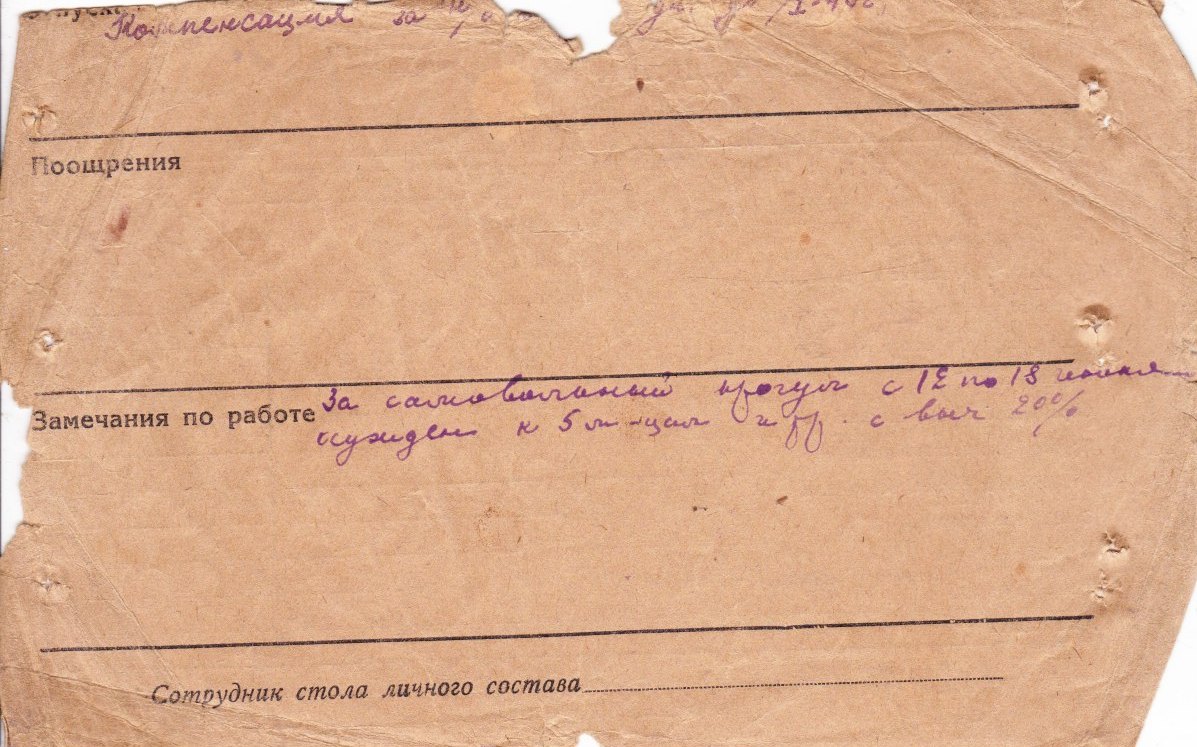 Компенсация за
Поощрения
Замечания по работе За самовольный прогул с 12 по 18 июня
осужден к 5 м-цам с выч 20%
Сотрудник стола личного состава